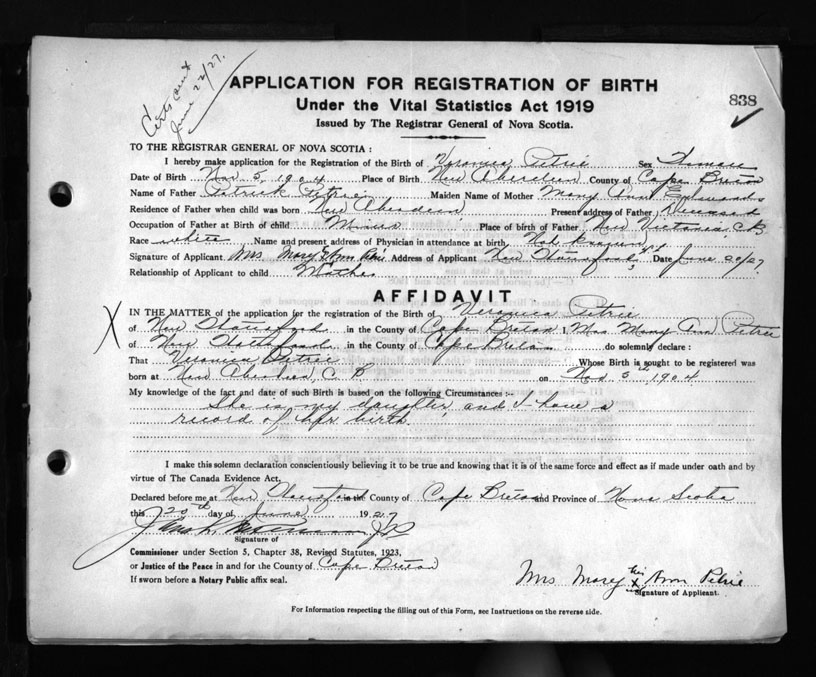 Certs sent
June 22/27.
APPLICATION FOR REGISTRATION OF BIRTH
838
Under the Vital Statistics Act 1919
Issued by The Registrar General of Nova Scotia.
TO THE REGISTRAR GENERAL OF NOVA SCOTIA :
I hereby make application for the Registration of the Birth of Veronica Petrie Sex Female
Date of Birth Nov 5, 1904 Place of Birth New Aberdeen County of Cape Breton
Name of Father Patrick Petrie Maiden Name of Mother Mary Ann Edwards
Residence of Father when child was born New Aberdeen Present address of Father Deceased
Occupation of Father at Birth of child Miner Place of birth of Father New Victoria, C.B.
Race white Name and present address of Physician in attendance at birth Not known
Signature of Applicant Mrs. Mary Ann Petrie Address of Applicant New Waterford Date June 20/27
Relationship of Applicant to child Mother
AFFIDAVIT
X
IN THE MATTER of the application for the registration of the Birth of Veronica Petrie
of New Waterford in the County of Cape Breton I, Mrs Mary Ann Petrie
of New Waterford in the County of Cape Breton do solemnly declare :
That Veronica Petrie Whose Birth is sought to be registered was
born at New Aberdeen, C B on Nov 5th 1904
My knowledge of the fact and date of such Birth is based on the following Circumstances :-
She is my daughter, and I have a
record of her birth.
I make this solemn declaration conscientiously believing it to be true and knowing that it is of the same force and effect as if made under oath and by
virtue of The Canada Evidence Act.
Declared before me at New Waterford in the County of Cape Breton and Province of Nova Scotia
this 20th day of June 1927
J P
Signature of
Commissioner under Section 5, Chapter 38, Revised Statutes, 1923,
or Justice of the Peace in and for the County of Cape Breton
If sworn before a Notary Public affix seal.
Mrs Mary her X Ann Petrie
Signature of Applicant.
For Information respecting the filling out of this Form, see Instructions on the reverse side.